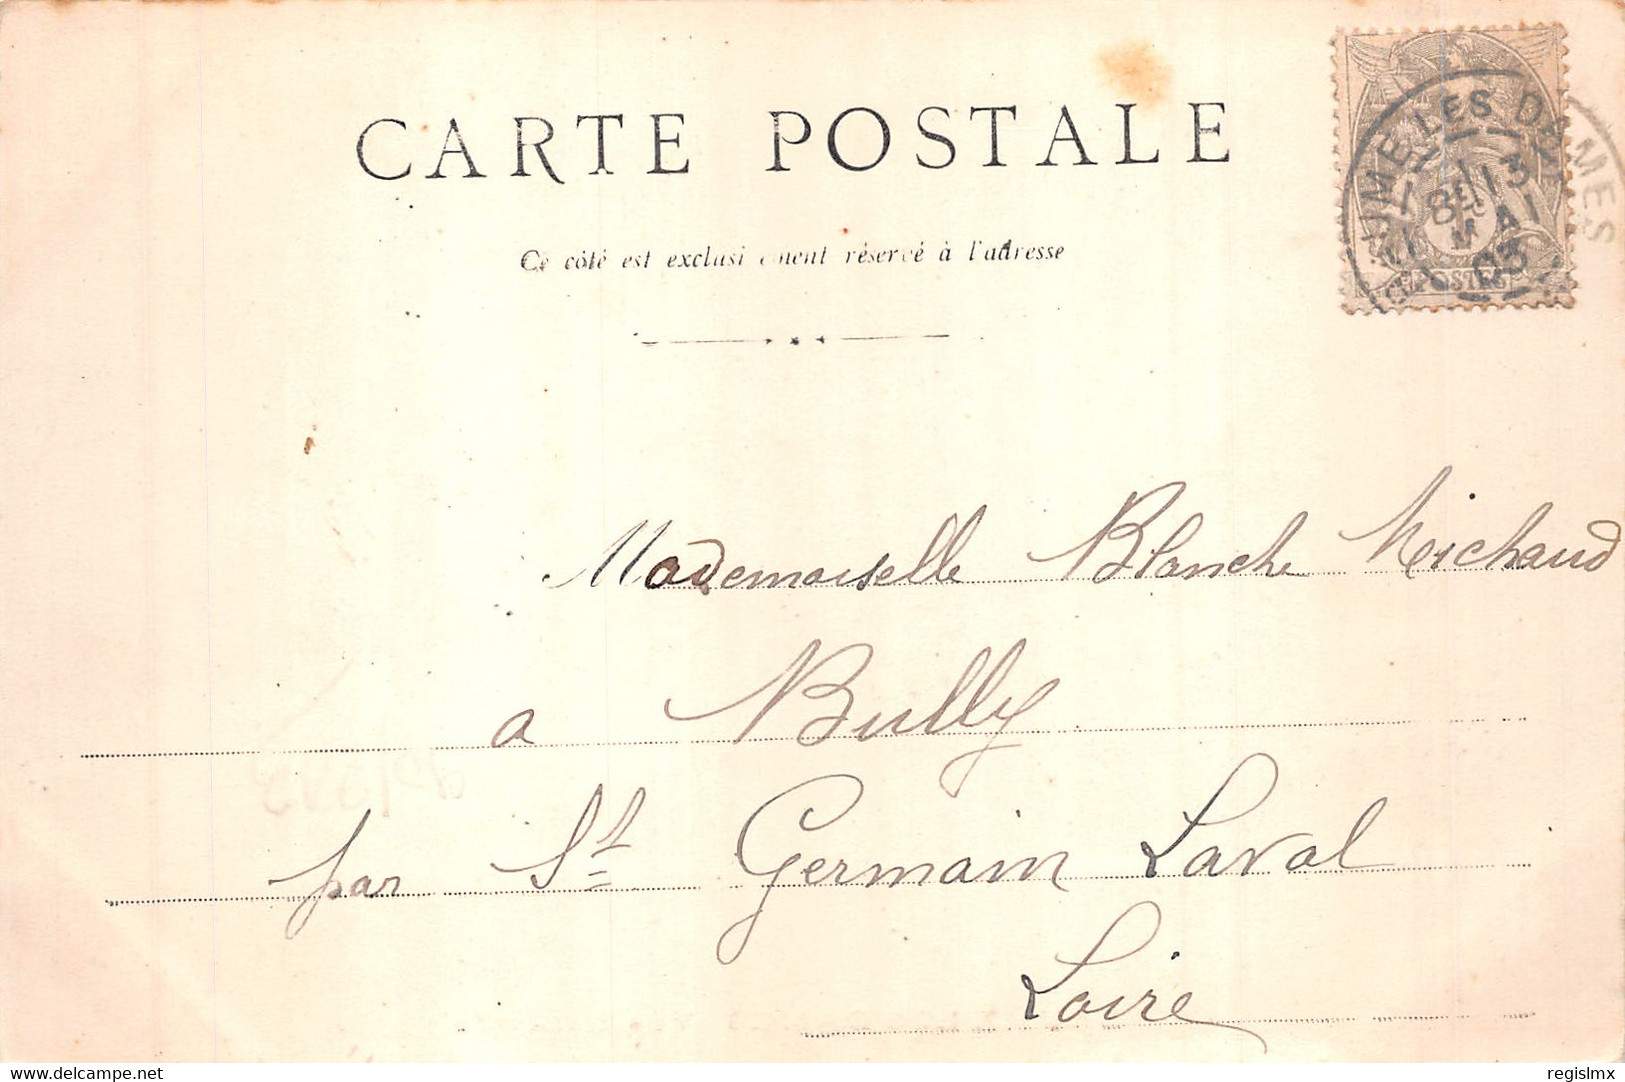 CARTE POSTALE
Ce côté est exclusivement réservé à l'adresse
UME LES DAMES
13
MAI
03
POSTES
Mademoiselle Blanche Michaud
a Bully
par St Germain Laval
Loire
delcampe.net
regislmx